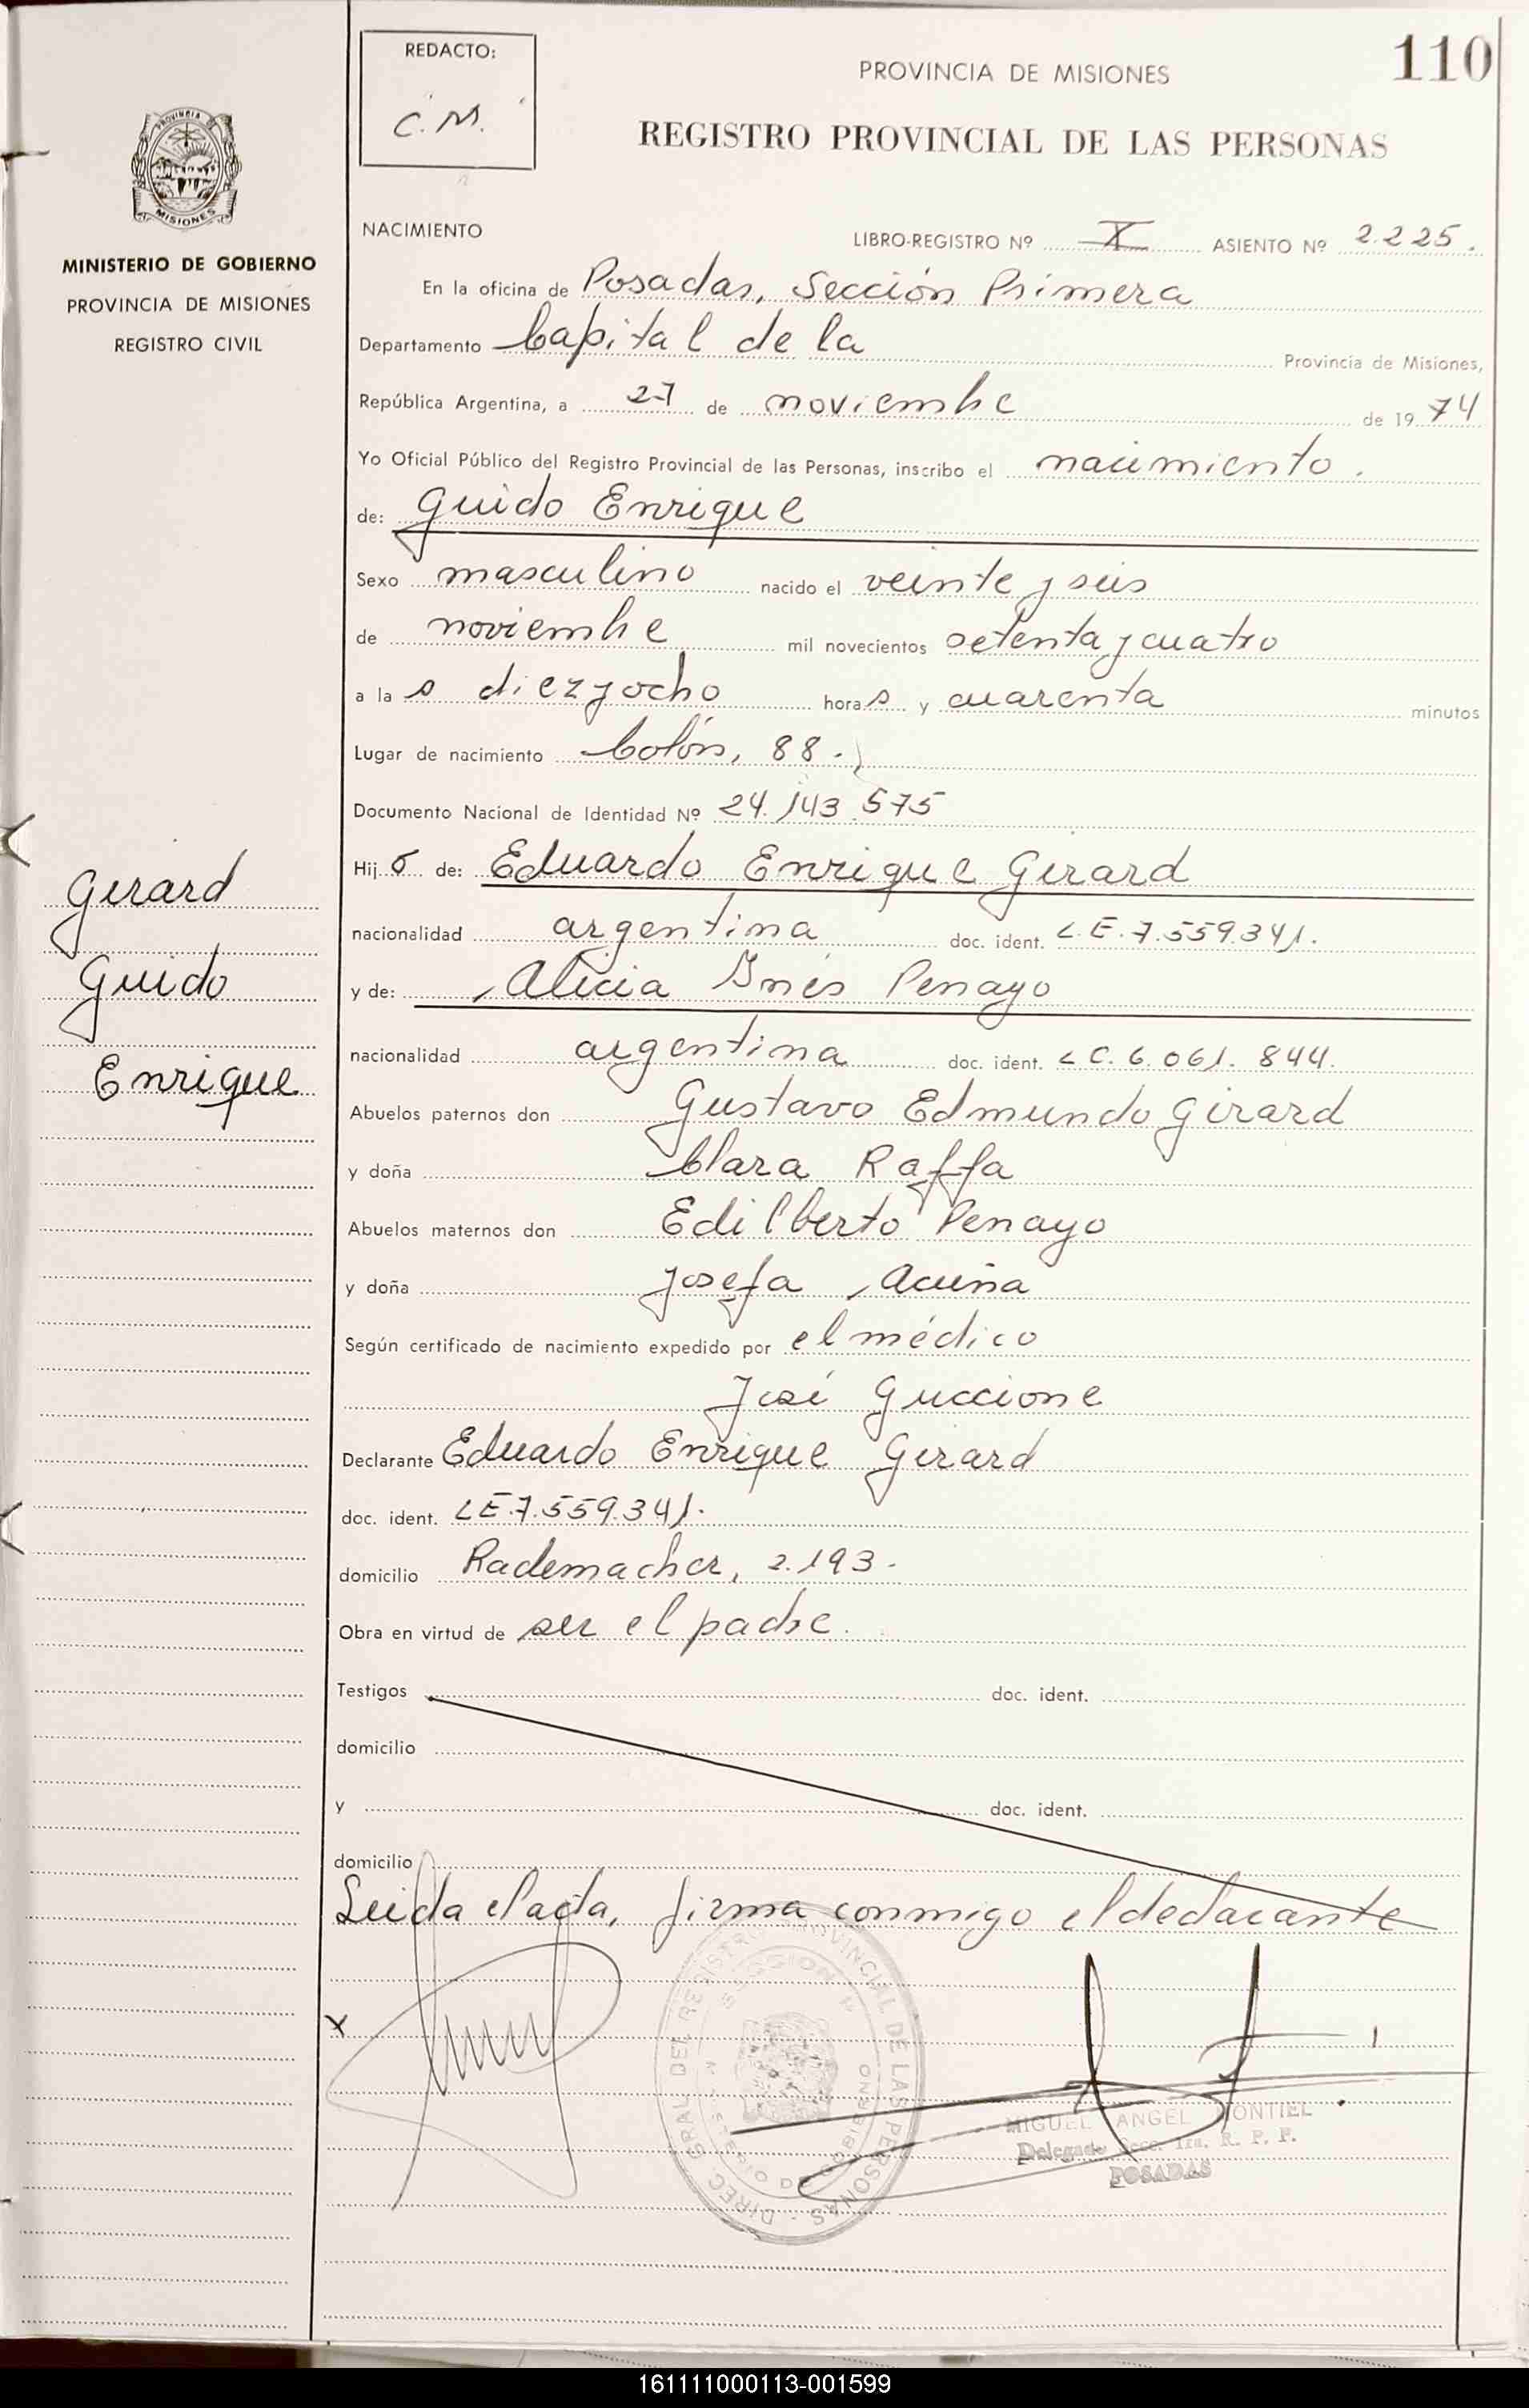 REDACTO:
C. M.
PROVINCIA DE MISIONES
110
REGISTRO PROVINCIAL DE LAS PERSONAS
MISIONES
MINISTERIO DE GOBIERNO
PROVINCIA DE MISIONES
REGISTRO CIVIL
NACIMIENTO
LIBRO-REGISTRO Nº X ASIENTO Nº 2.225.
En la oficina de Posadas, Sección Primera
Departamento Capital de la Provincia de Misiones,
República Argentina, a 27 de noviembre de 1974
Yo Oficial Público del Registro Provincial de las Personas, inscribo el nacimiento.
de: Guido Enrique
Sexo masculino nacido el veinte y seis
de noviembre mil novecientos setenta y cuatro
a las diez y ocho horas y cuarenta minutos
Lugar de nacimiento Colón, 88.
Documento Nacional de Identidad Nº 24.143.575
Hijo de: Eduardo Enrique Girard
nacionalidad argentina doc. ident. L.E.7.559.341.
y de: Alicia Inés Penayo
nacionalidad argentina doc. ident. L C. 6.061.844.
Abuelos paternos don Gustavo Edmundo Girard
y doña Clara Raffa
Abuelos maternos don Edilberto Penayo
y doña Josefa Acuña
Según certificado de nacimiento expedido por el médico
José Guccione
Declarante Eduardo Enrique Girard
doc. ident. LE.7.559.341.
domicilio Rademacher, 2.193.
Obra en virtud de ser el padre.
Testigos doc. ident.
domicilio
y doc. ident.
domicilio
Leida el acta, firma conmigo el declarante
Girard
Guido
Enrique
x
DIREC. GRAL. DEL REGISTRO PROVINCIAL DE LAS PERSONAS
MIGUEL ANGEL MONTIEL
Delegado Secc. 1ra. R. P. P.
POSADAS
161111000113-001599